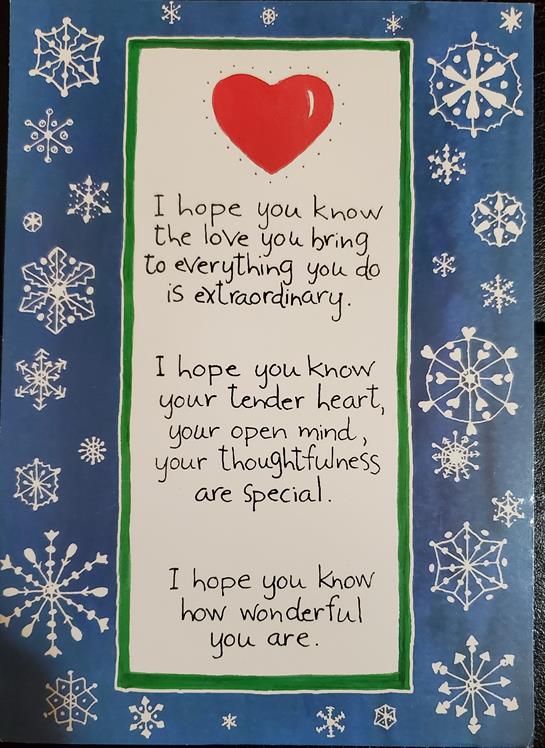 I hope you know
the love you bring
to everything you do
is extraordinary.
I hope you know
your tender heart,
your open mind,
your thoughtfulness
are special.
I hope you know
how wonderful
you are.